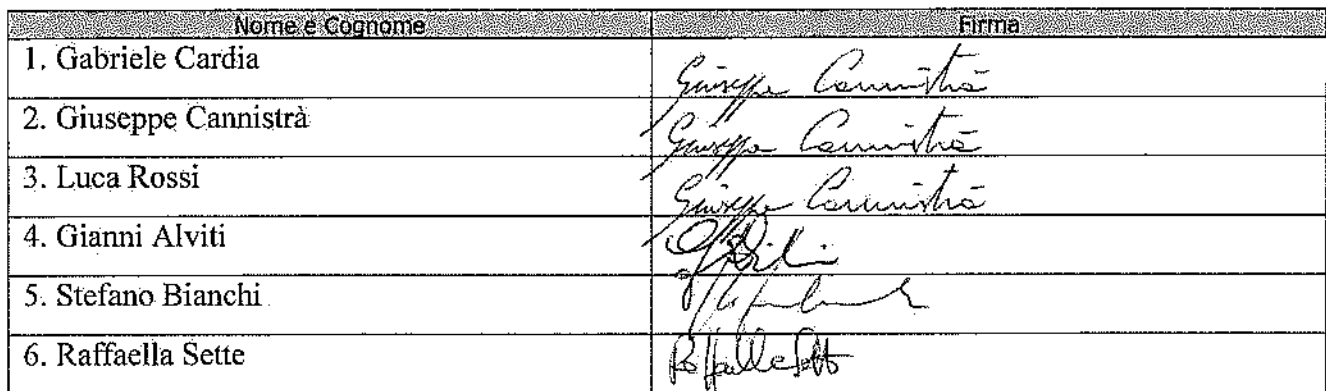 Nome e Cognome Firma
1. Gabriele Cardia Giuseppe Cannistrà
2. Giuseppe Cannistrà Giuseppe Cannistrà
3. Luca Rossi Giuseppe Cannistrà
4. Gianni Alviti
5. Stefano Bianchi
6. Raffaella Sette Raffaella Sette